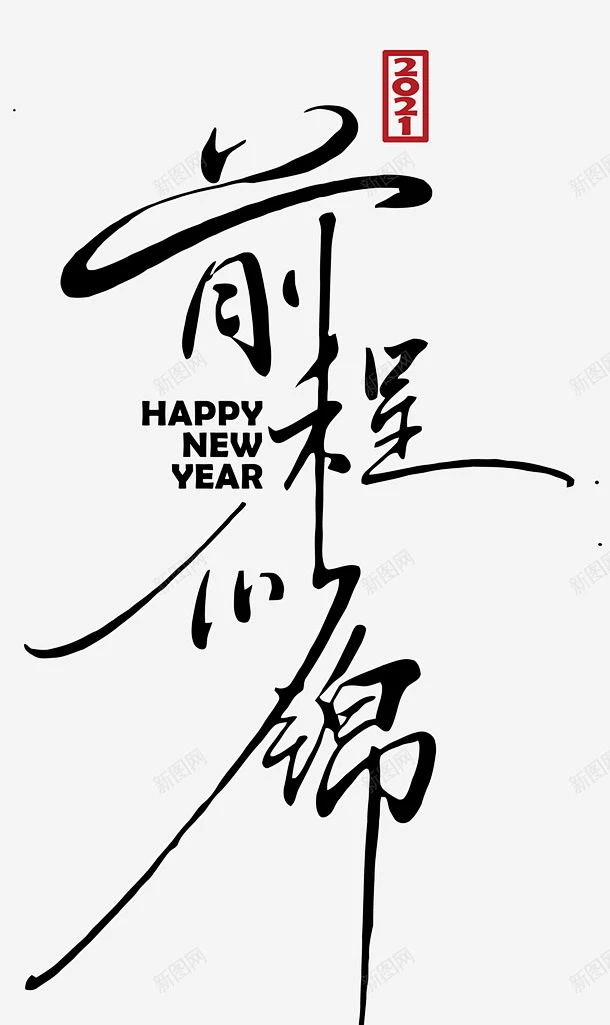 2021
前程似锦
HAPPY
NEW
YEAR
新图网